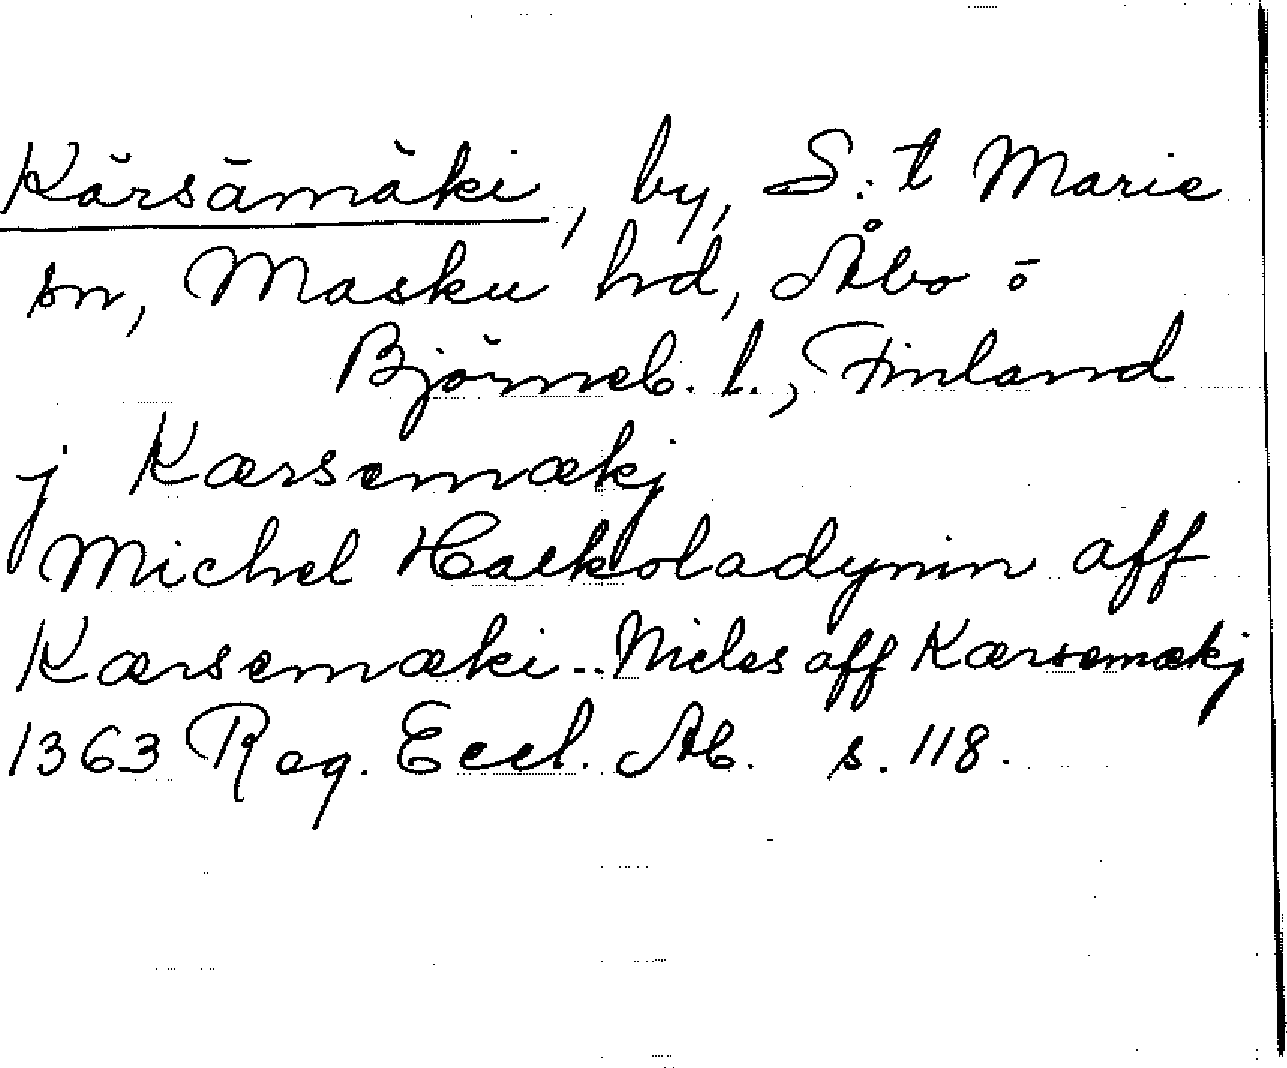 Kärsämäki, by, S:t Marie
sn, Masku hd, Åbo o
Björneb. l., Finland
j Kærsemækj
Michel Haekoladynin aff
Kærsemæki .. Nieles aff Kærsemækj
1363 Reg. Eccl. Ab. s. 118.